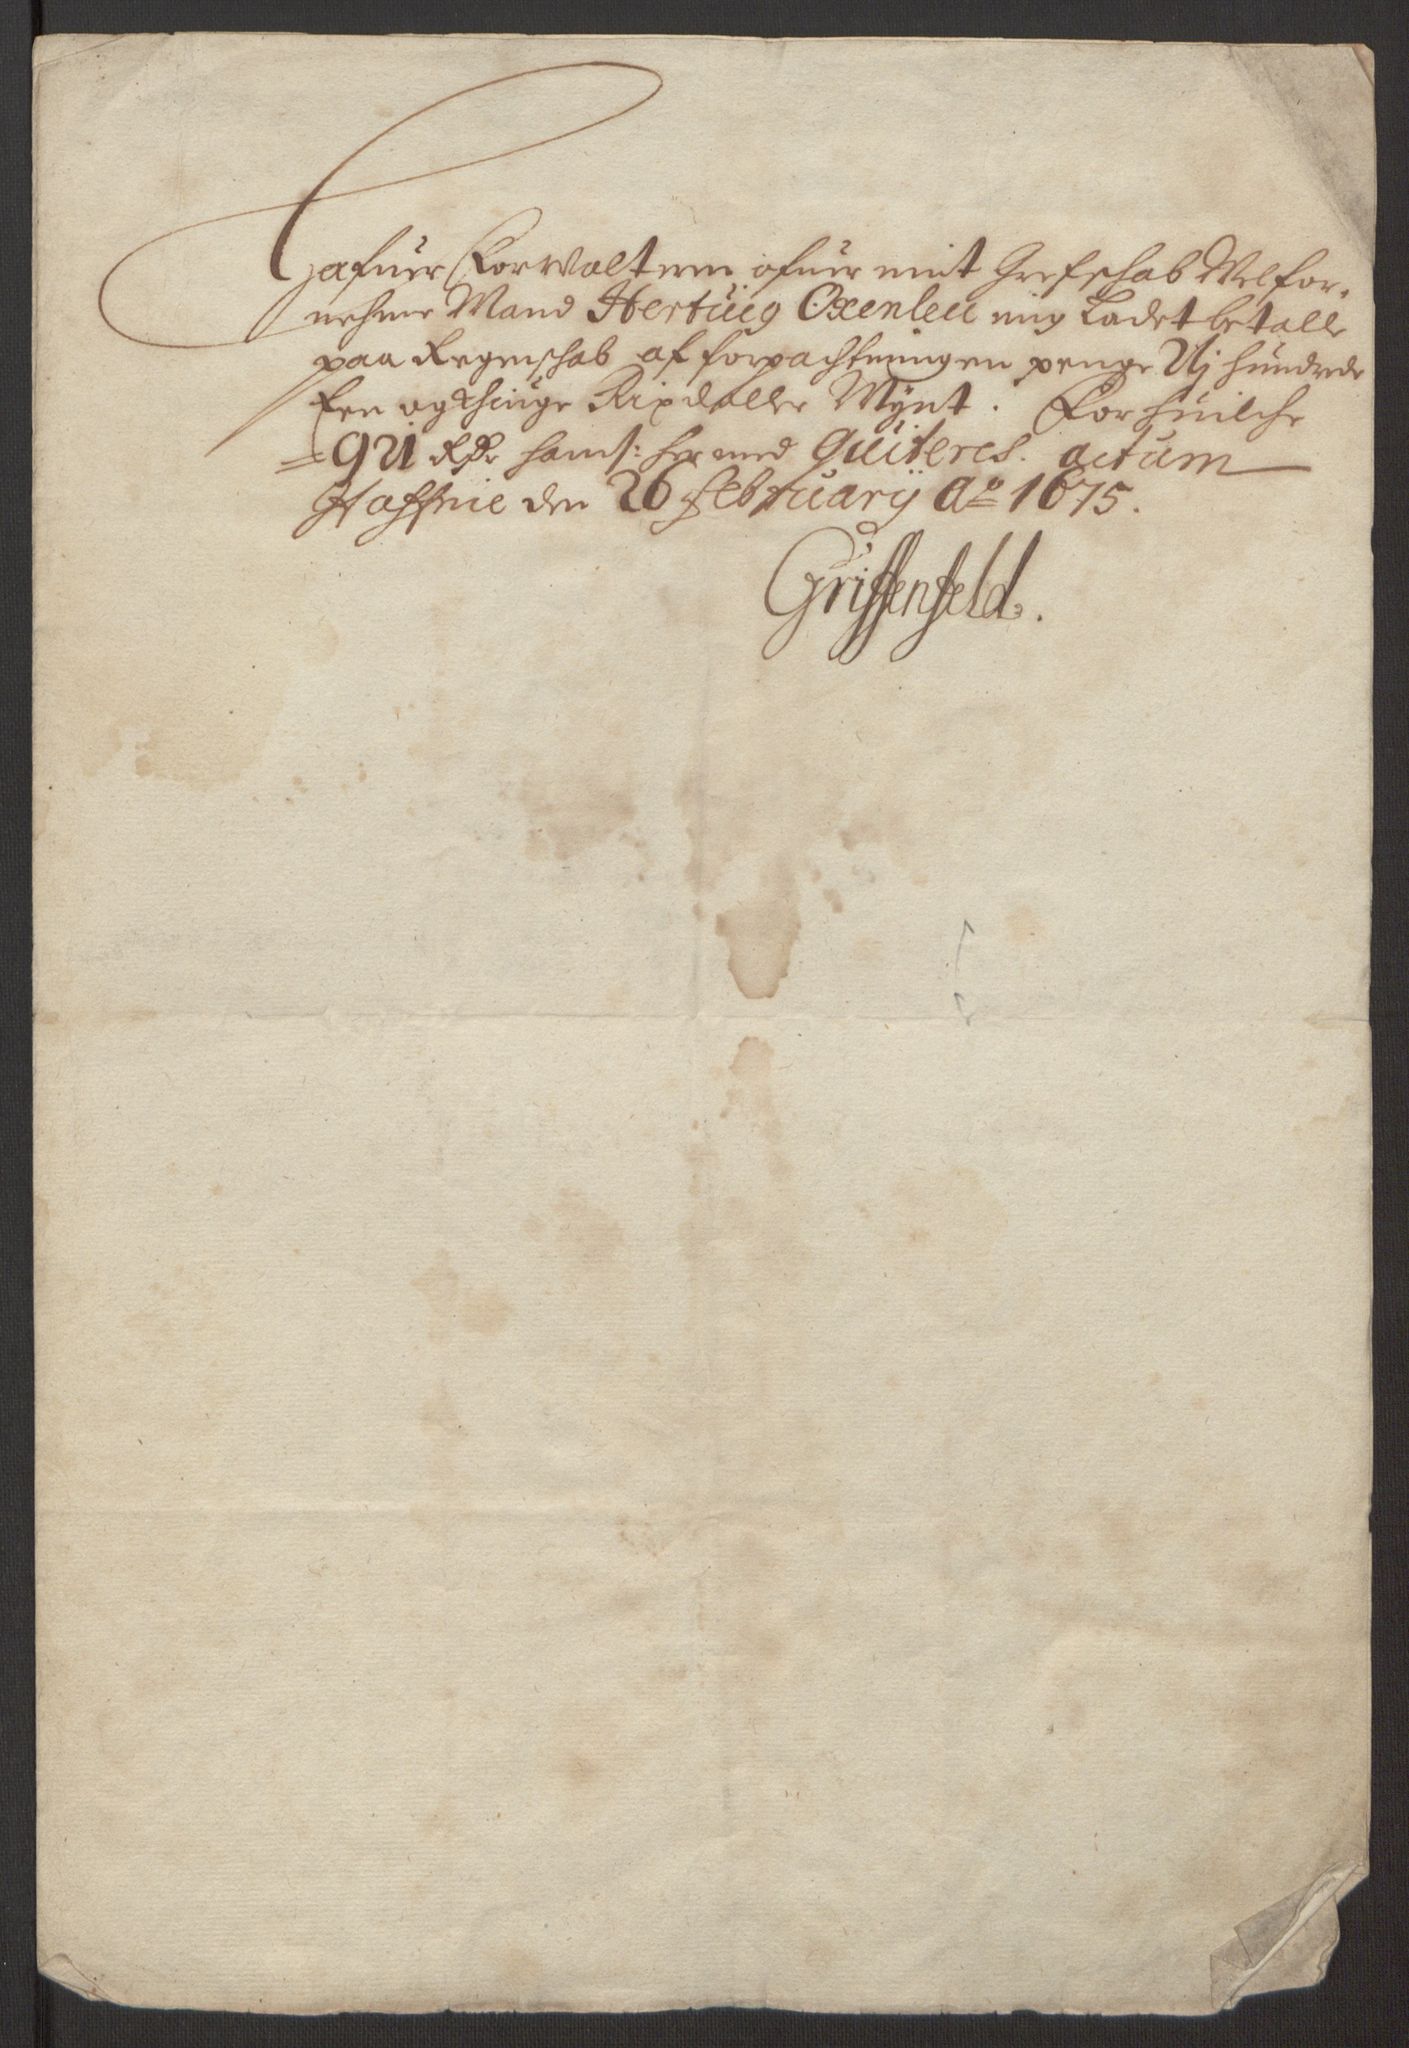 Hafuer Forwalteren ofuer mit Grefschab Velfor-
nehme Mand Hertuig Oxenleu mig Ladet betalle
paa Regenschab af forpachtningen penge Nj hundrede
Een og thiuge Rixdaller Mynt. For huilche
=921 Rdr hand: hermed quiteres. actum
Haffnie den 26 februarij Ao 1675.
Griffenfeld.